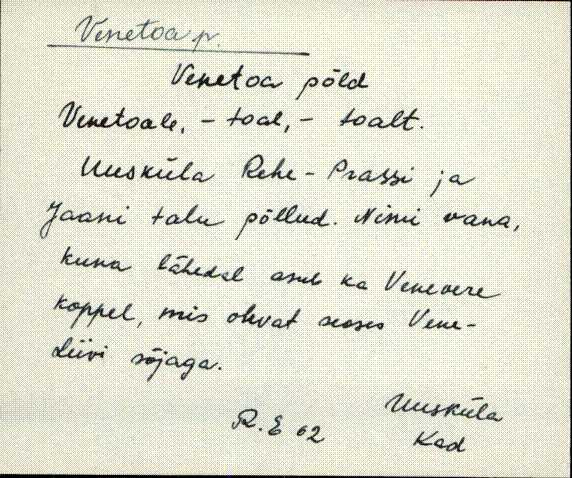 Venetoa p.
Venetoa põld
Venetoale, - toal, - toalt.
Uusküla Rehe - Prassi ja
Jaani talu põllud. Nimi vana,
kuna lähedal asub ka Venevere
koppel, mis olevat seoses Vene-
Liivi sõjaga.
R. E 62
Uusküla
Kad